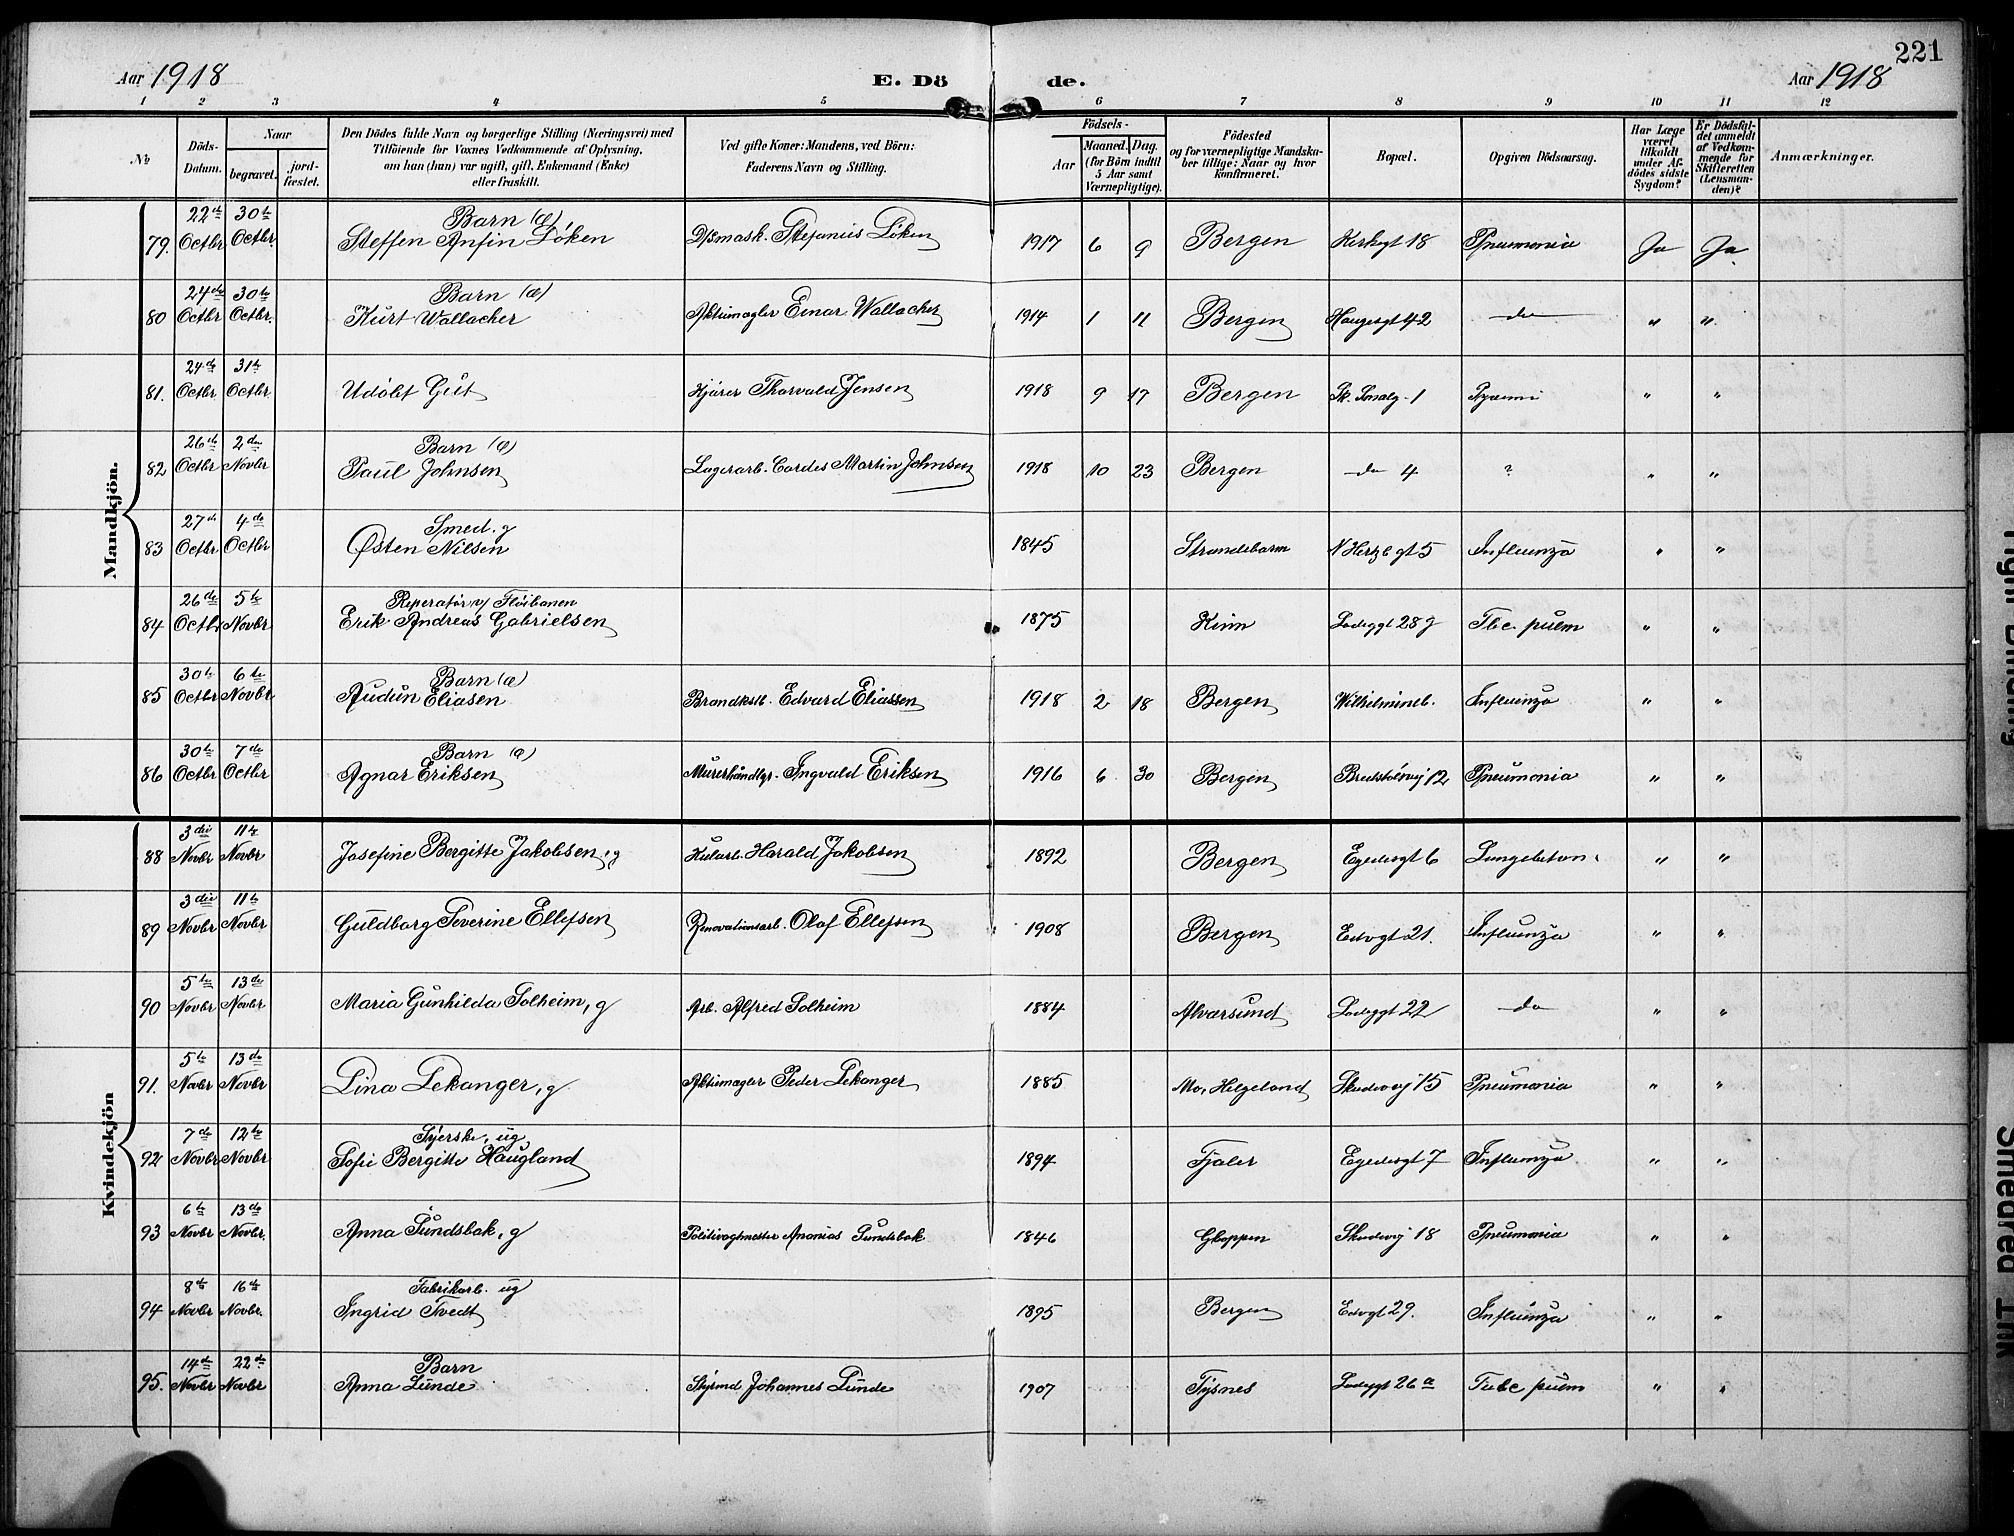 221
Aar 1918 E. Dö de. Aar 1918
1 2 3 4 5 6 7 8 9 10 11 12
No
Döds-Datum.
Naar
begravet.
jord-fæstet.
Den Dödes fulde Navn og borgerlige Stilling (Næringsvei) med
Tilföiende for Voxnes Vedkommende af Oplysning,
om han (hun) var ugift, gift, Enkemand (Enke)
eller fraskilt.
Ved gifte Koner: Mandens, ved Börn:
Faderens Navn og Stilling.
Födsels-
Aar
Maaned. Dag.
(for Börn indtil
5 Aar samt
Værnepligtige).
Födested
og for værnepligtige Mandska-
ber tillige: Naar og hvor
konfirmeret.
Bopæl.
Opgiven Dödsaarsag.
Har Læge
været
tilkaldt
under Af-
dödes sidste
Sygdom?
Er Dödsfal-
det anmeldt
af Vedkom-
mende for
Skifteretten
(Lensman-
den)?
Anmærkninger.
Mandkjön.
22de 30te Barn (æ)
79. Octbr Octbr. Steffen Anfin Löken Stefanus Löken 1917 6 9 Bergen Kirkegt 18 Pneumonia Ja Ja
24de 30te Barn (æ)
80 Octbr Octbr. Kurt Wallacher Aktiemægler Einar Wallacher 1914 1 11 Bergen Haugesgt 42 do " "
24de 31te
81. Octbr Octbr. Udöbt Gut Kjörer Thorvald Jensen 1918 9 17 Bergen 1 " "
26de 2den Barn (æ)
82 Octbr Novbr Paul Johnsen Lagerarb. Cordes Martin Johnsen 1918 10 23 Bergen do 4 ? " "
27de 4de Smed. g
83 Octbr Octbr Østen Nilsen 1845 Strandebarm N Herzb gt 5 Influenza " "
26de 5te Reperatör v/ Flöibanen
84 Octbr Novbr Erik Andreas Gabrielsen 1875 Kinn Ladeggt 28 Tbc. pulm " "
30te 6te Barn (æ)
85 Octbr Novbr Audun Eliasen Brandkstb. Edvard Eliassen 1918 2 18 Bergen Wilhelmineb. Influenza " "
30te 7de Barn (æ)
86 Octbr Octbr Agnar Eriksen Murerhåndlgr. Ingvald Eriksen 1916 6 30 Bergen 12 Pneumonia " "
Kvindekjön
3die 11te
88 Novbr Novbr Josefine Bergitte Jakobsen, g Kularb. Harald Jakobsen 1892 Bergen Egedesgt 6 Lungebetæn. " "
3die 11te
89 Novbr Novbr Guldborg Severine Ellefsen Renovationsarb. Olaf Ellefsen 1908 Bergen Edvgt 21. Influenza " "
5te 13de
90 Novbr Novbr Maria Gunhilda Solheim, g Arb. Alfred Solheim 1884 Alversund Ladeggt 22 do " "
5te 13de
91. Novbr Novbr Lina Lekanger, g Aktiemægler Peder Lekanger 1885 Mo, Helgeland Skudevj 15 Pneumonia " "
7de 12te Syerske, ug
92 Novbr Novbr Sofie Bergitte Haugland 1894 Fjaler Egedesgt 7 Influenza " "
6te 13de
93 Novbr Novbr. Anna Sundsbak, g Ananias Sundsbak 1846 Gloppen Skudevj 18 Pneumonia " "
8de 16de Fabrikarb. ug
94 Novbr Novbr. Ingrid Tvedt 1895 Bergen Edvgt 29. Influenza " "
14de 22de Barn
95. Novbr Novbr Anna Lunde Styrmd Johannes Lunde 1907 Tysnes Ladeggt 26a Tube pulm " "
Smeared Ink